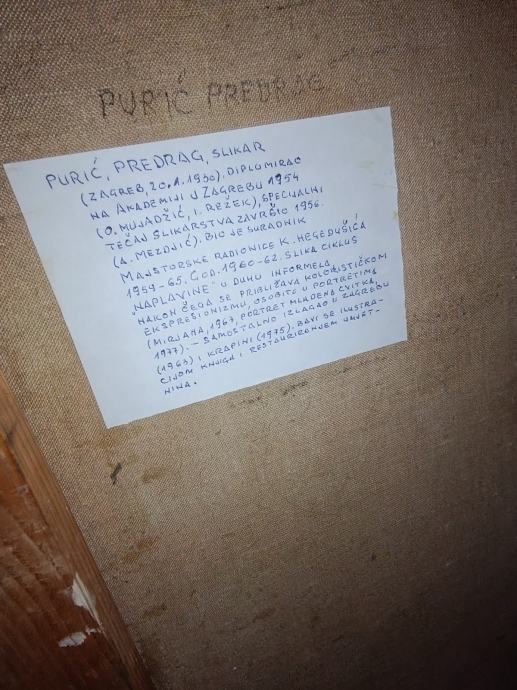 PURIĆ PREDRAG
PURIĆ, PREDRAG, SLIKAR
(ZAGREB, 20.1.1930), DIPLOMIRAO
NA AKADEMIJI U ZAGREBU 1954
(O. MUJADŽIĆ, I. REŽEK), SPECIJALNI
TEČAJ SLIKARSTVA ZAVRŠIO 1956.
(A. MEZDJIĆ). BIO JE SURADNIK
MAJSTORSKE RADIONICE K. HEGEDUŠIĆA
1959-65. GOD. 1960-62. SLIKA CIKLUS
"NAPLAVINE" U DUHU INFORMELA,
NAKON ČEGA SE PRIBLIŽAVA KOLORISTIČKOM
EKSPRESIONIZMU, OSOBITO U PORTRETIMA
(MIRJANA, 1967, PORTRET MLADENA CVITKA,
1977). - SAMOSTALNO IZLAGAO U ZAGREBU
(1963) I KRAPINI (1975). BAVI SE ILUSTRA-
CIJOM KNJIGA I RESTAURIRANJEM UMJET-
NINA.